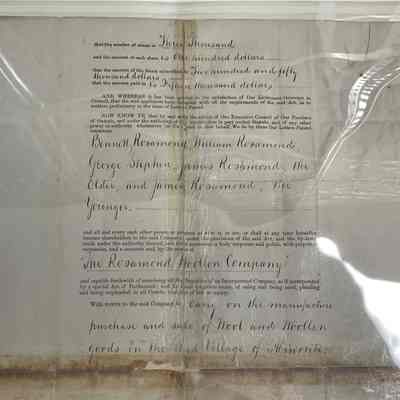 that the number of shares is Three Thousand
and the amount of each share is One hundred dollars
that the amount of the Stock subscribed is Two hundred and fifty
thousand dollars
that the amount paid in is Fifteen thousand dollars
AND WHEREAS it has been proved to the satisfaction of Our Lieutenant-Governor in
Council, that the said applicants have complied with all the requirements of the said Act, as to
matters preliminary to the issue of Letters Patent
NOW KNOW YE that by and with the advice of Our Executive Council of Our Province
of Ontario, and under the authority of the in part recited Statute, and of any other
power or authority whatsoever in Us in that behalf, We do by these Our Letters Patent
constitute
Bennett Rosamond, William Rosamond,
George Stephen, James Rosamond, the
Elder, and James Rosamond, the
Younger.
and all and every such other person or persons as now is, or are, or shall at any time hereafter
become shareholders in the said Company, under the provisions of the said Act, and the by-laws
made under the authority thereof, a body corporate and politic, with perpetual
succession, and a common seal, by the name of
"The Rosamond Woollen Company"
and capable forthwith of exercising all the functions of an Incorporated Company, as if incorporated
by a special Act of Parliament, and by their corporate name, of suing and being sued, pleading
and being impleaded, in all Courts, whether of law or equity.
With power to the said Company to carry on the manufacture
purchase and sale of Wool and Woollen
goods in the said Village of Almonte